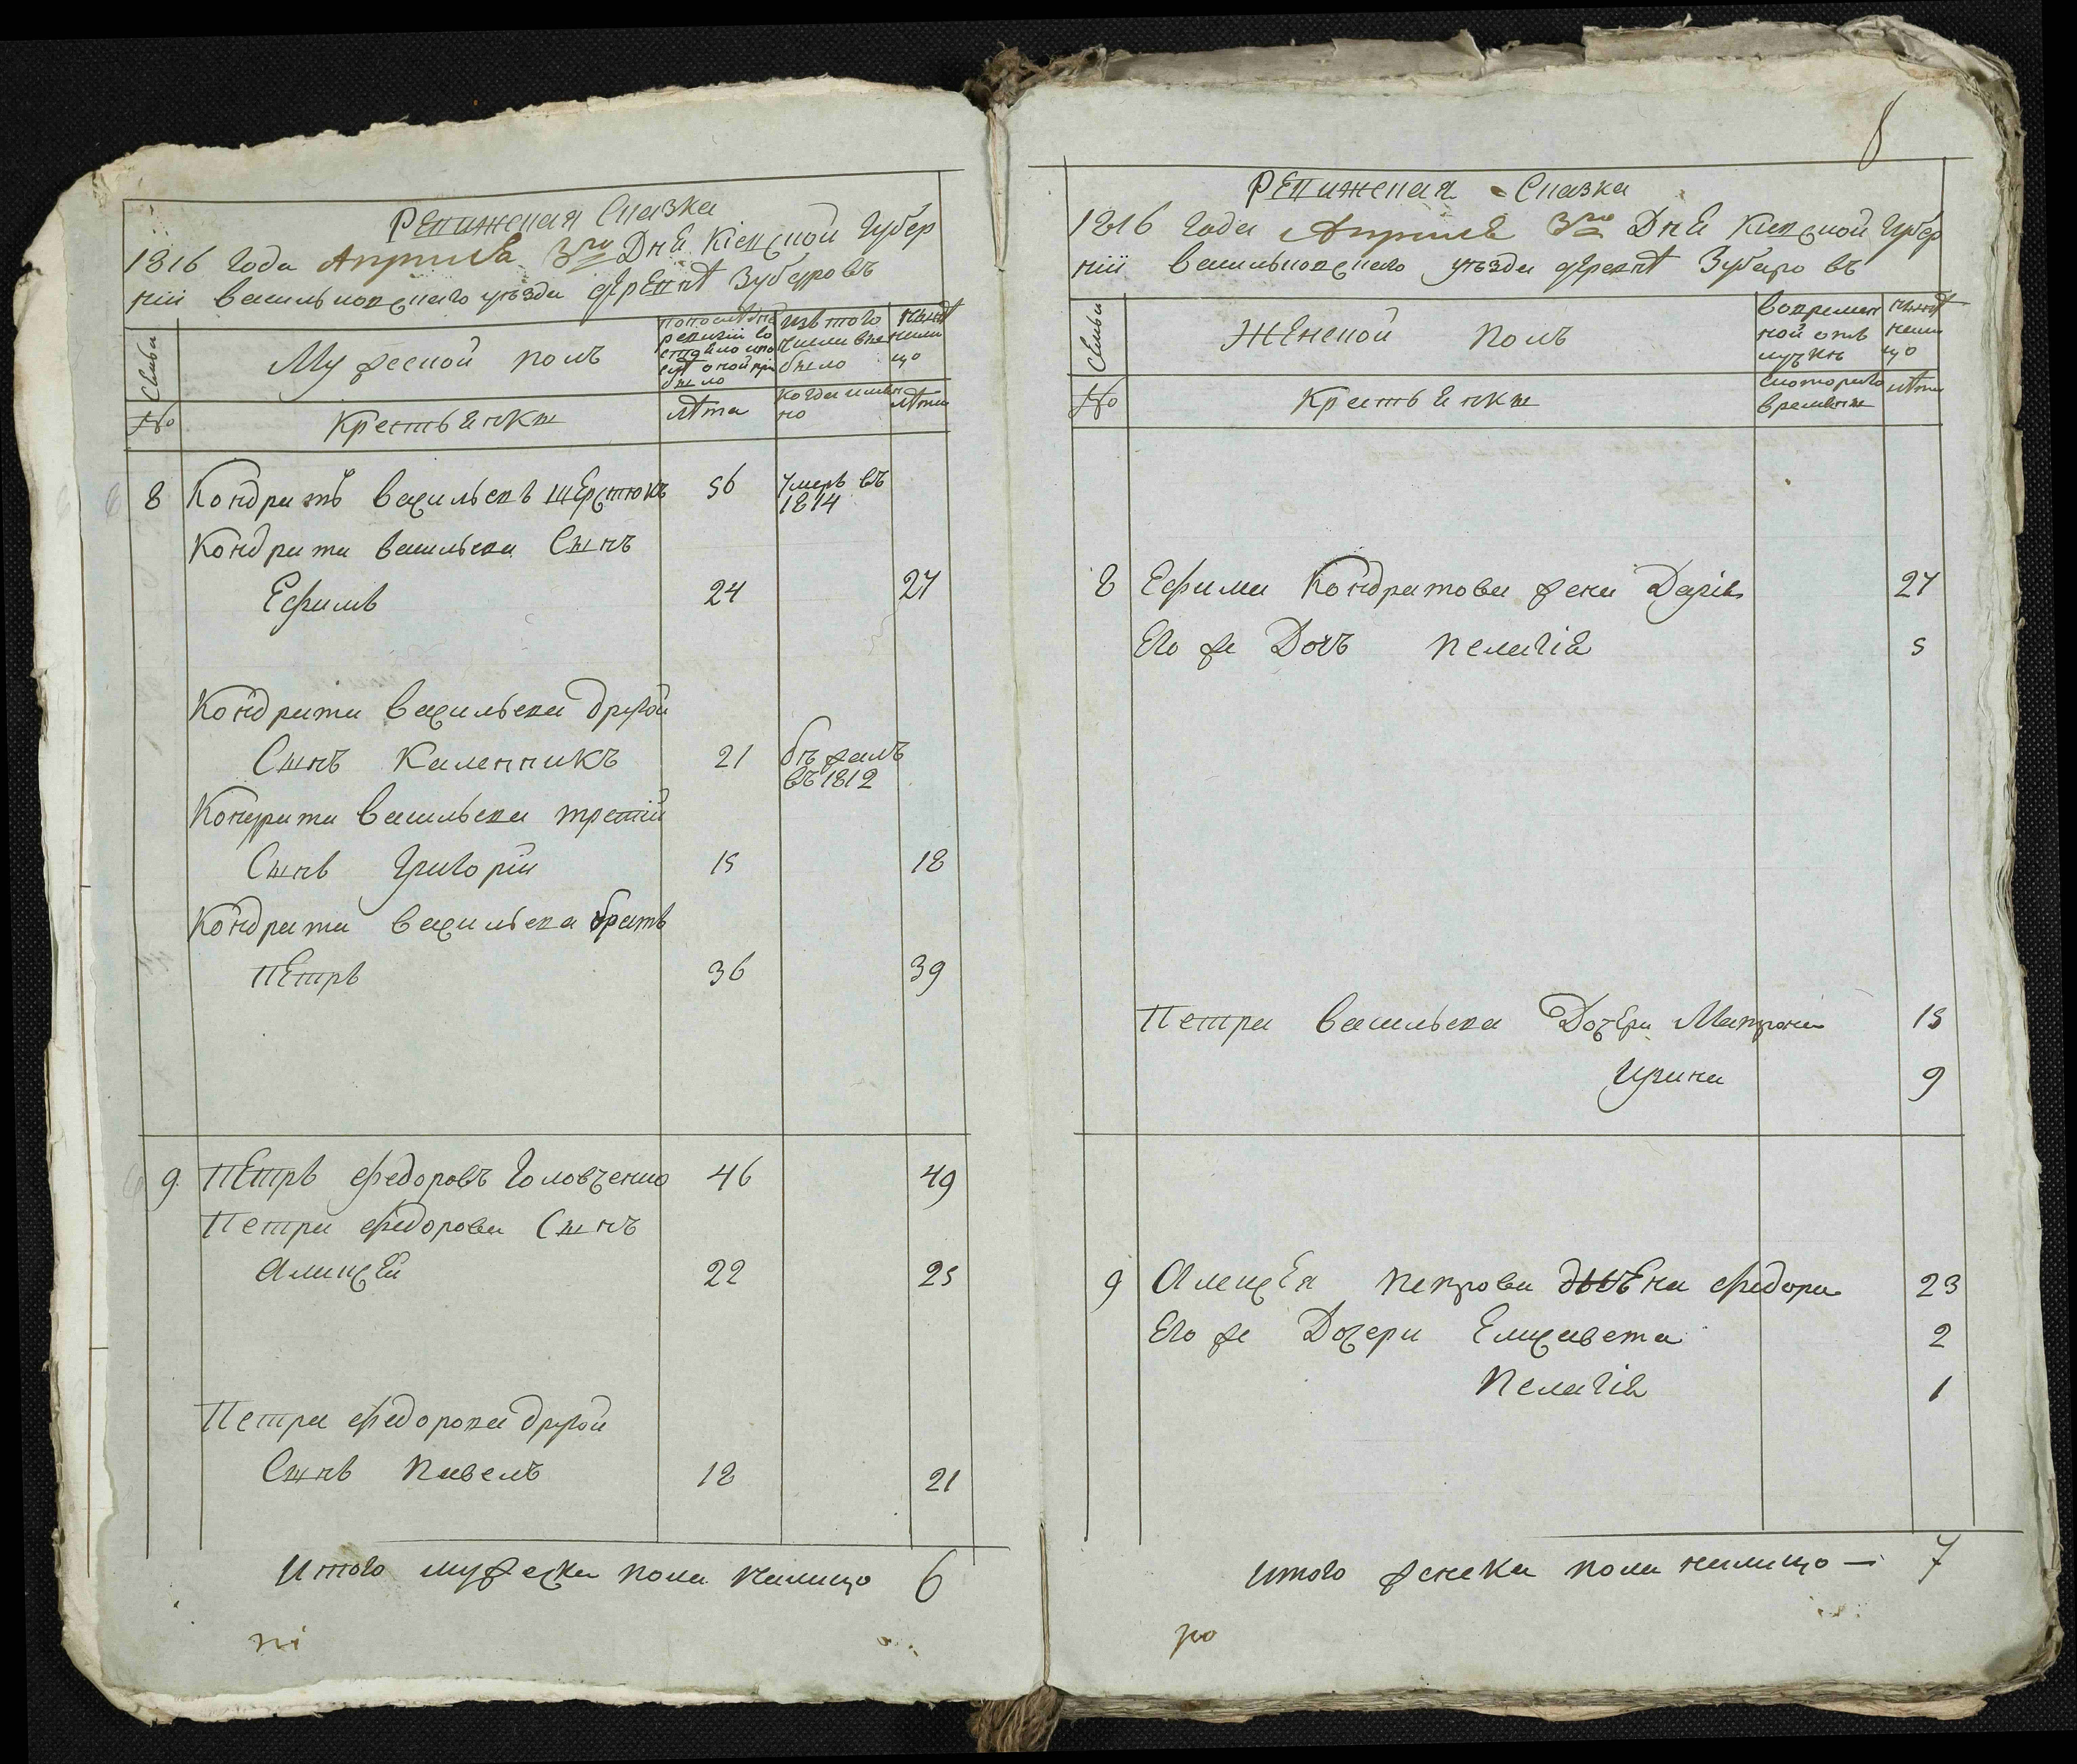 Ревижская Сказка
1816 Года Апрѣля 3го Дня Кіевской Губер
ніи васильковскаго уѣзда деревнѣ Зубаровъ
Семьи
Мужеской полъ
попослѣдне
ревизіи со
было
изъ того
числа вы
было
нынѣ
нали
цо
№
Крестьянкы
лѣта
когда имен
но
лѣта
8 Кондратъ васильевъ шерстюкъ 56 умеръ въ
1814
Кондрата васильева Сынъ
Ефимъ 24 27
Кондрата васильева другой
Сынъ Каленникъ 21 бѣжалъ
въ 1812
Кондрата васильева третій
Сынъ Григорій 15 18
Кондрата васильева братъ
Петръ 36 39
9 Петръ федоровъ Головченко 46 49
Петра федорова Сынъ
Аликсей 22 25
Петра федорова другой
Сынъ Павелъ 18 21
Итого мужеска пола налицо 6
ni
8
Ревижская Сказка
1816 Года Апрѣля 3го Дня Киевской Губер
ніи васильковскаго уѣзда деревнѣ Зубаро въ
Семьи
Женской полъ
вовремен
ной отъ
лучкѣ
нынѣ
нали
цо
№
Крестьянкы
скоторого
времены
лѣта
8 Ефима Кондратова жена Дарія 27
Его же Дочъ Пелагія 5
Петра васильева Дочери Матрона 15
Ирина 9
9 Алексея Петрова жена федора 23
Его же Дочери Елисавета 2
Пелагія 1
Итого женска пола налицо — 7
ро